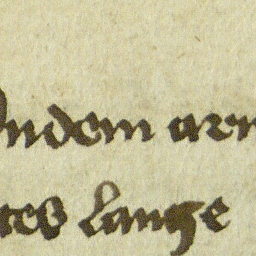 Indem arm
tes lange